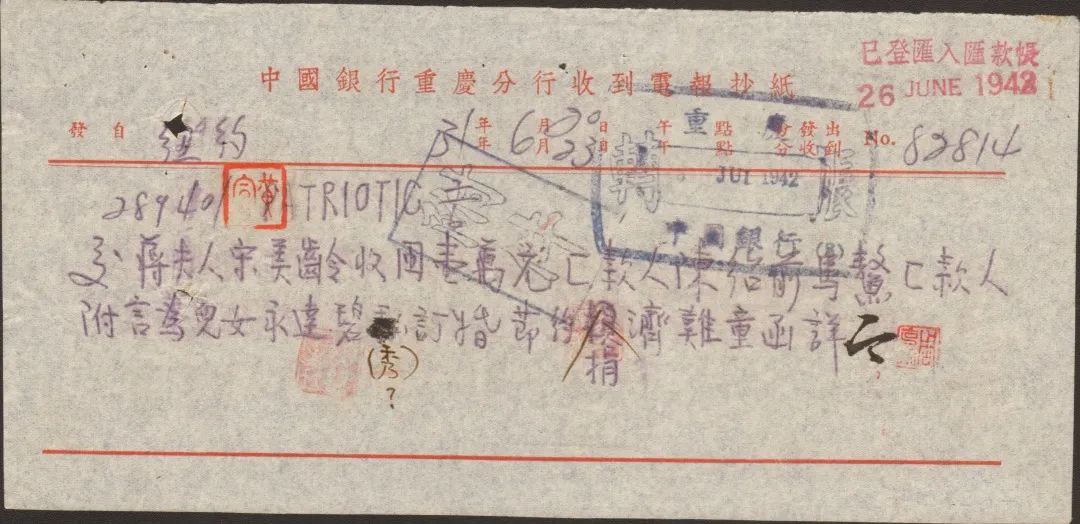 已登匯入匯款帳
26 JUNE 1942
中國銀行重慶分行收到電報抄紙
發自 紐約 31年6月20日 午 點 分發出
年 月23日 午 點 分收到 No. 82814
重慶
轉賬
1942
中國銀行
28940 PATRIOTIC
交蔣夫人宋美齡收國幣萬元匸款人陳 匸款人
附言為兒女永達碧 訂婚節約 濟難童函詳
(秀)?
捐